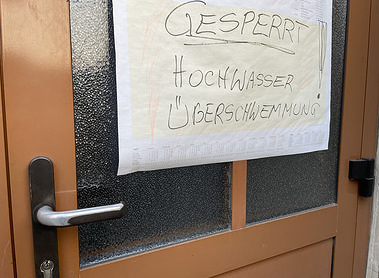 GESPERRT
HOCHWASSER
ÜBERSCHWEMMUNG!